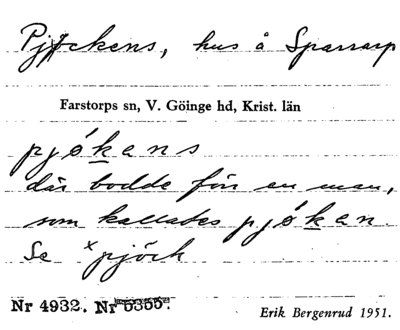 Pjöckens, hus å Sparrarp
Farstorps sn, V. Göinge hd, Krist. län
pjókens
där bodde förr en man,
som kallades pjóken.
Se *pjöck
Nr 4932. Nr 5355.
Erik Bergenrud 1951.